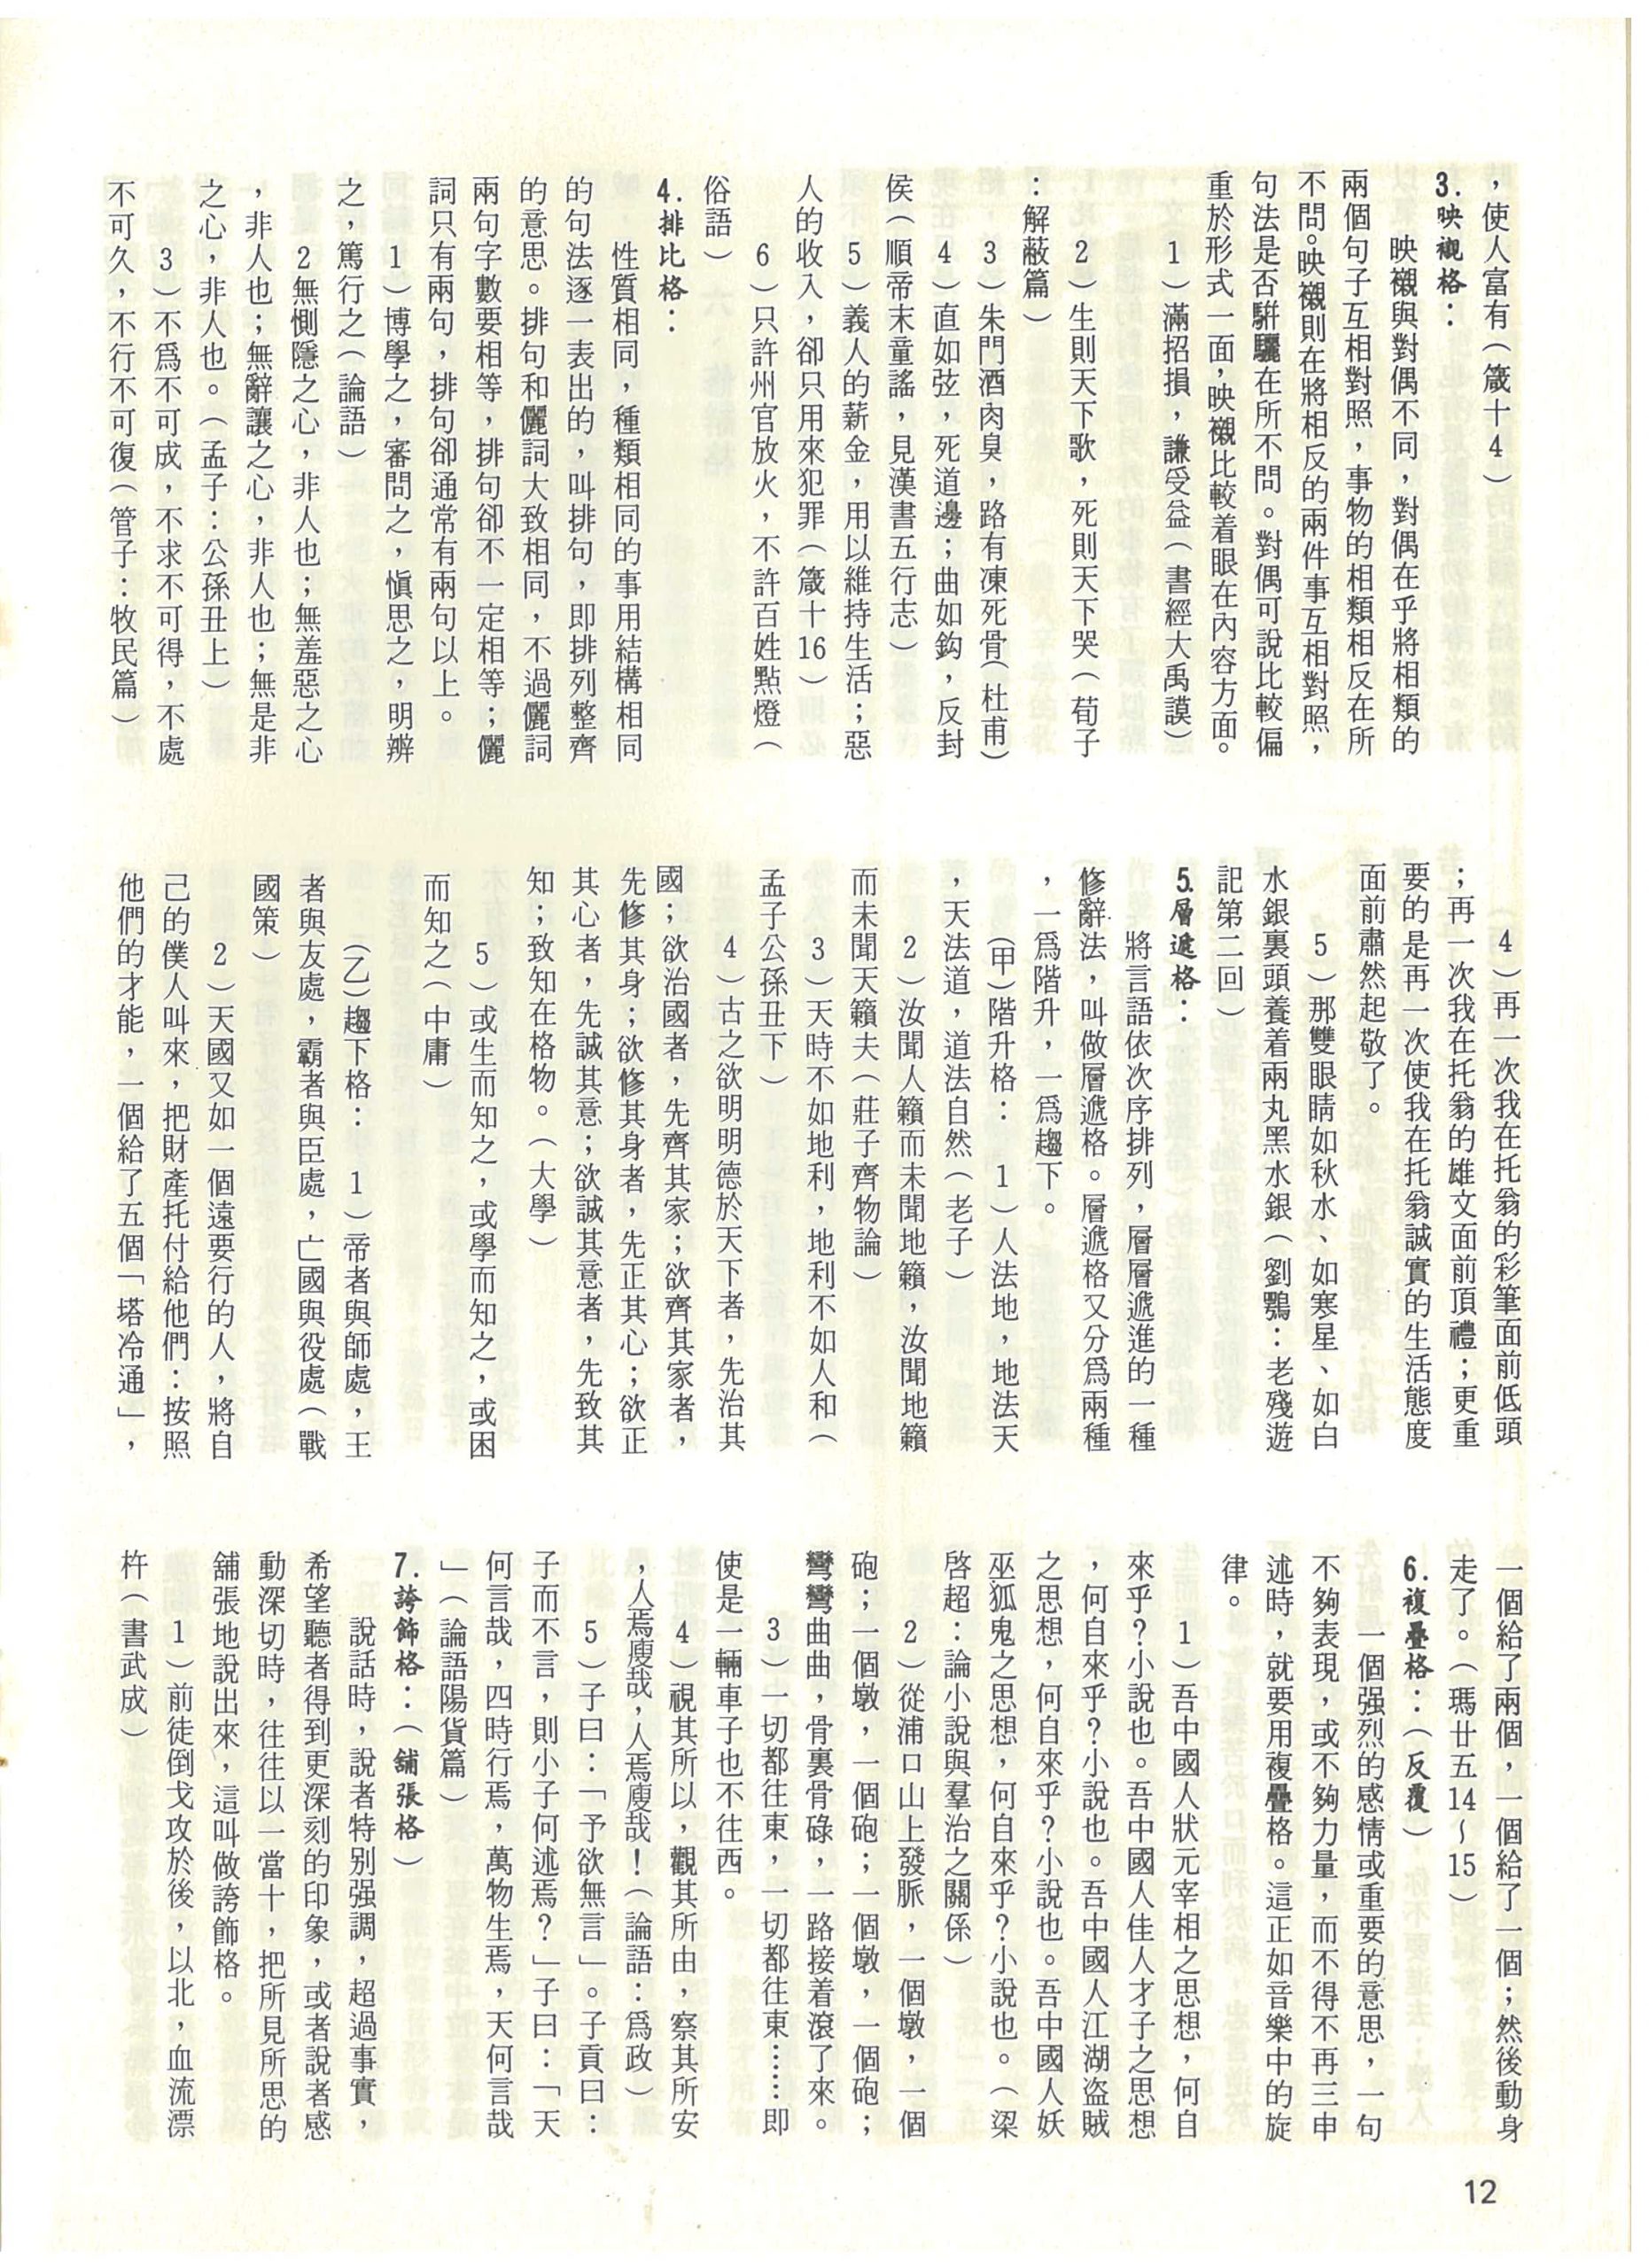 ，使人富有（箴十4）
3.映襯格：
映襯與對偶不同，對偶在乎將相類的
兩個句子互相對照，事物的相類相反在所
不問。映襯則在將相反的兩件事互相對照，
句法是否駢驪在所不問。對偶可說比較偏
重於形式一面，映襯比較着眼在內容方面。
1）滿招損，謙受益（書經大禹謨）
2）生則天下歌，死則天下哭（荀子
：解蔽篇）
3）朱門酒肉臭，路有凍死骨（杜甫）
4）直如弦，死道邊；曲如鈎，反封
侯（順帝末童謠，見漢書五行志）
5）義人的薪金，用以維持生活；惡
人的收入，卻只用來犯罪（箴十16）
6）只許州官放火，不許百姓點燈（
俗語）
4.排比格：
性質相同，種類相同的事用結構相同
的句法逐一表出的，叫排句，即排列整齊
的意思。排句和儷詞大致相同，不過儷詞
兩句字數要相等，排句卻不一定相等；儷
詞只有兩句，排句卻通常有兩句以上。
1）博學之，審問之，愼思之，明辨
之，篤行之（論語）
2無惻隱之心，非人也；無羞惡之心
，非人也；無辭讓之心，非人也；無是非
之心，非人也。（孟子：公孫丑上）
3）不爲不可成，不求不可得，不處
不可久，不行不可復（管子：牧民篇）
4）再一次我在托翁的彩筆面前低頭
；再一次我在托翁的雄文面前頂禮；更重
要的是再一次使我在托翁誠實的生活態度
面前肅然起敬了。
5）那雙眼睛如秋水、如寒星、如白
水銀裏頭養着兩丸黑水銀（劉鶚：老殘遊
記第二回）
5.層遞格：
將言語依次序排列，層層遞進的一種
修辭法，叫做層遞格。層遞格又分爲兩種
，一爲階升，一爲趨下。
（甲）階升格：　1）人法地，地法天
，天法道，道法自然（老子）
2）汝聞人籟而未聞地籟，汝聞地籟
而未聞天籟夫（莊子齊物論）
3）天時不如地利，地利不如人和（
孟子公孫丑下）
4）古之欲明明德於天下者，先治其
國；欲治國者，先齊其家；欲齊其家者，
先修其身；欲修其身者，先正其心；欲正
其心者，先誠其意；欲誠其意者，先致其
知；致知在格物。（大學）
5）或生而知之，或學而知之，或困
而知之（中庸）
（乙）趨下格：　1）帝者與師處，王
者與友處，霸者與臣處，亡國與役處（戰
國策）
2）天國又如一個遠要行的人，將自
己的僕人叫來，把財產托付給他們：按照
他們的才能，一個給了五個「塔冷通」，
一個給了兩個，一個給了一個；然後動身
走了。（瑪廿五14～15）
6.複疊格：（反覆）
一個强烈的感情或重要的意思，一句
不夠表現，或不夠力量，而不得不再三申
述時，就要用複疊格。這正如音樂中的旋
律。
1）吾中國人狀元宰相之思想，何自
來乎？小說也。吾中國人佳人才子之思想
，何自來乎？小說也。吾中國人江湖盜賊
之思想，何自來乎？小說也。吾中國人妖
巫狐鬼之思想，何自來乎？小說也。（梁
啓超：論小說與羣治之關係）
2）從浦口山上發脈，一個墩，一個
砲；一個墩，一個砲；一個墩，一個砲；
彎彎曲曲，骨裏骨碌，一路接着滾了來。
3）一切都往東，一切都往東……即
使是一輛車子也不往西。
4）視其所以，觀其所由，察其所安
，人焉廋哉，人焉廋哉！（論語：爲政）
5）子曰：「予欲無言」。子貢曰：
子而不言，則小子何述焉？」子曰：「天
何言哉，四時行焉，萬物生焉，天何言哉
」（論語陽貨篇）
7.誇飾格：（舖張格）
說話時，說者特別强調，超過事實，
希望聽者得到更深刻的印象，或者說者感
動深切時，往往以一當十，把所見所思的
舖張地說出來，這叫做誇飾格。
1）前徒倒戈攻於後，以北，血流漂
杵（書武成）
12